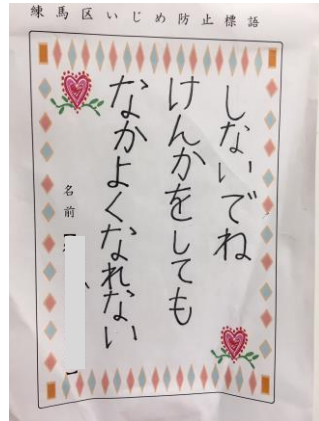 練馬区いじめ防止標語
しないでね
けんかをしても
なかよくなれない
名前